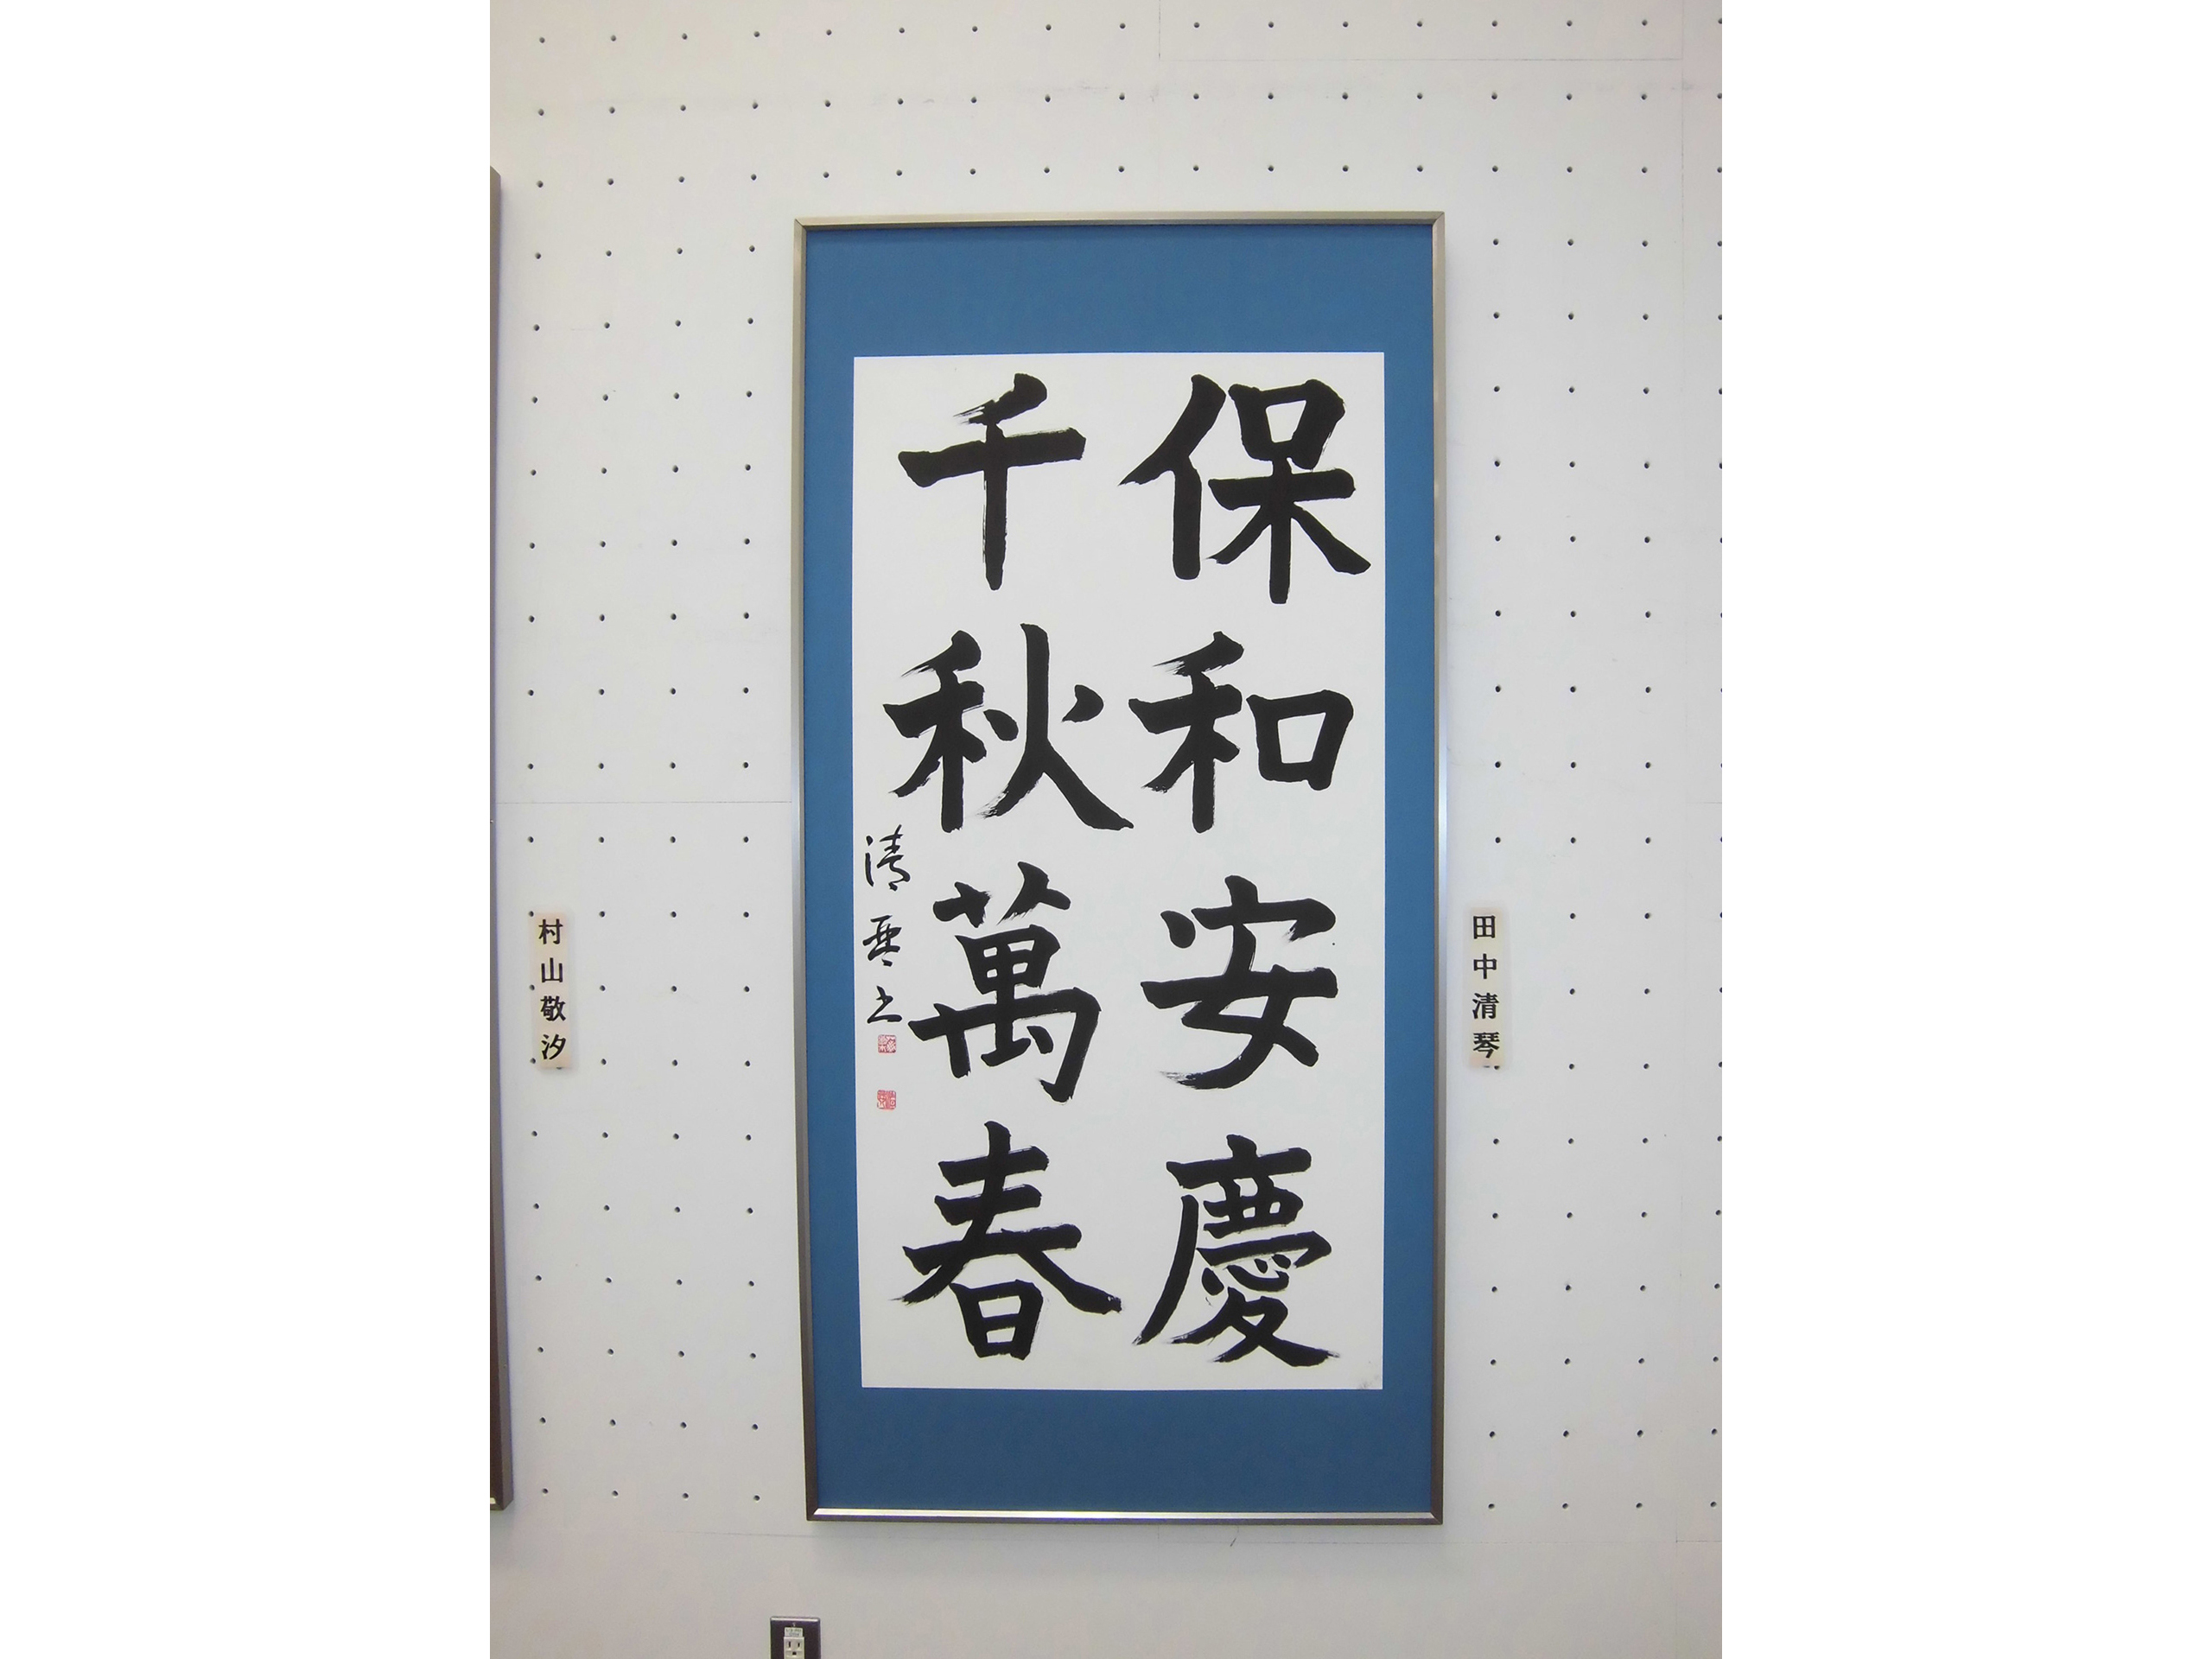 保和安慶
千秋萬春
清琴书
田中清琴
村山敬汐